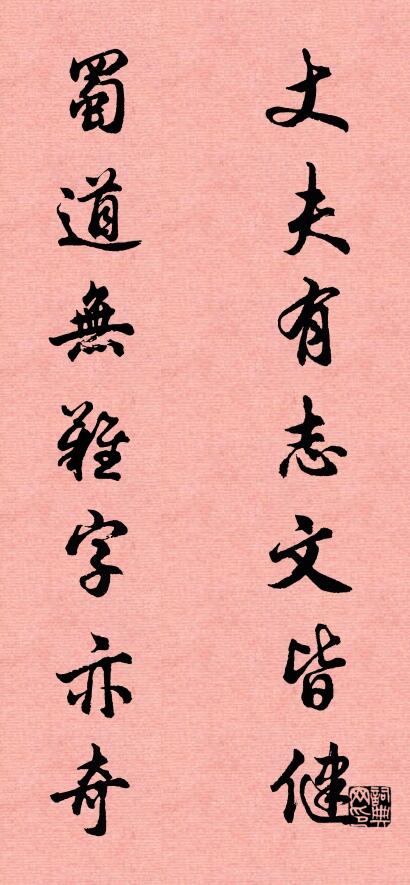 丈夫有志文皆健
蜀道無難字亦奇
詞典
网印